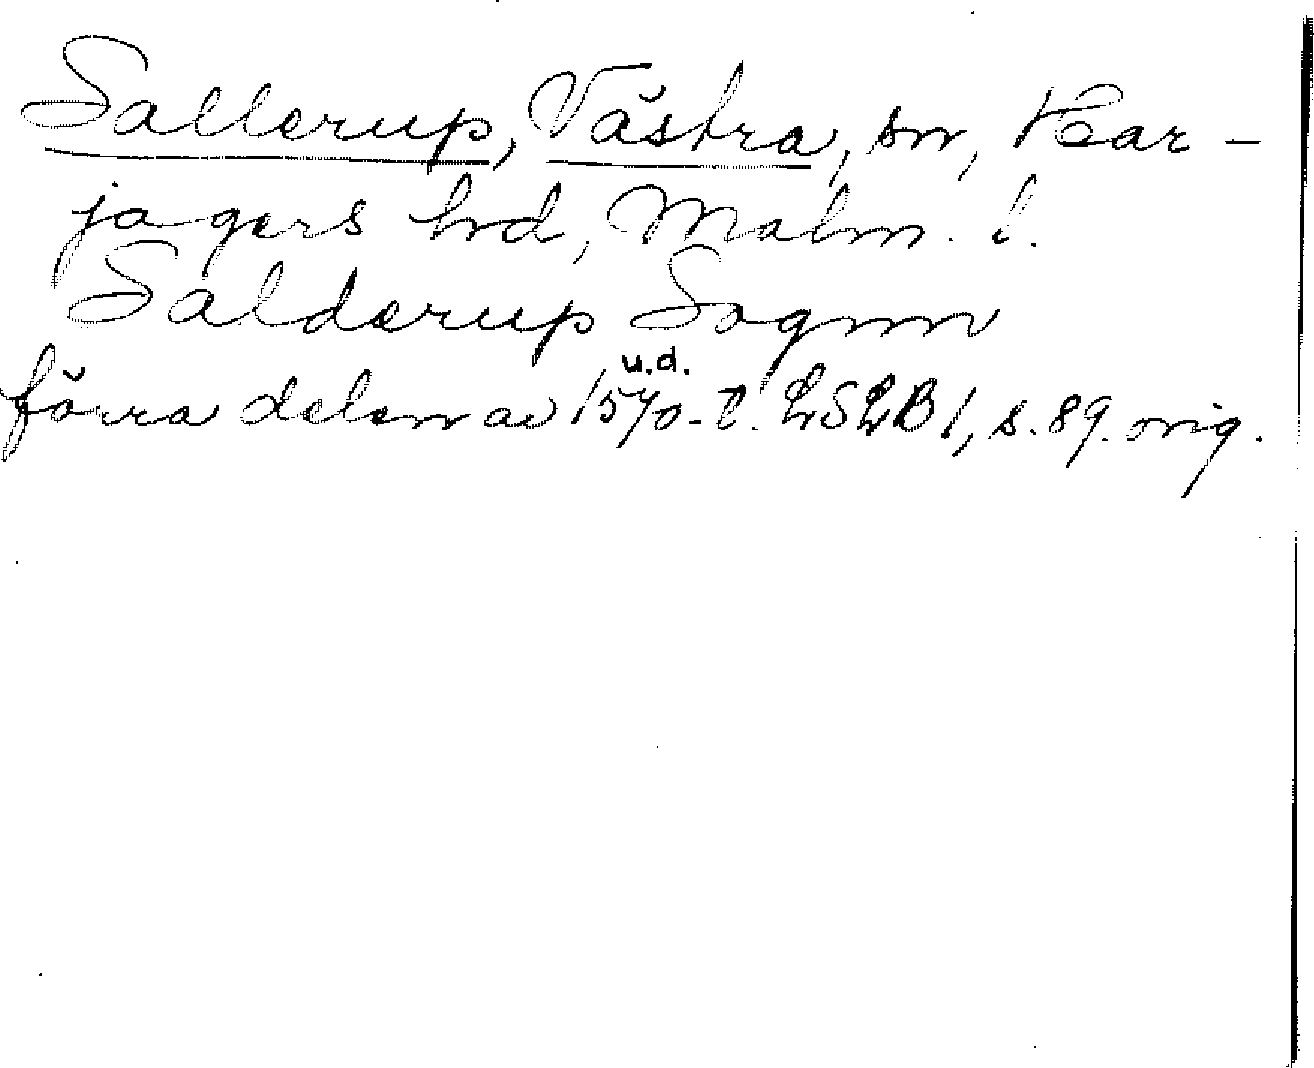 Sallerup, Västra, sn, Har-
jagers hd, Malm. l.
Salderup Sognn
u.d.
förra delen av 1570-t. LSLB 1, s. 89. orig.